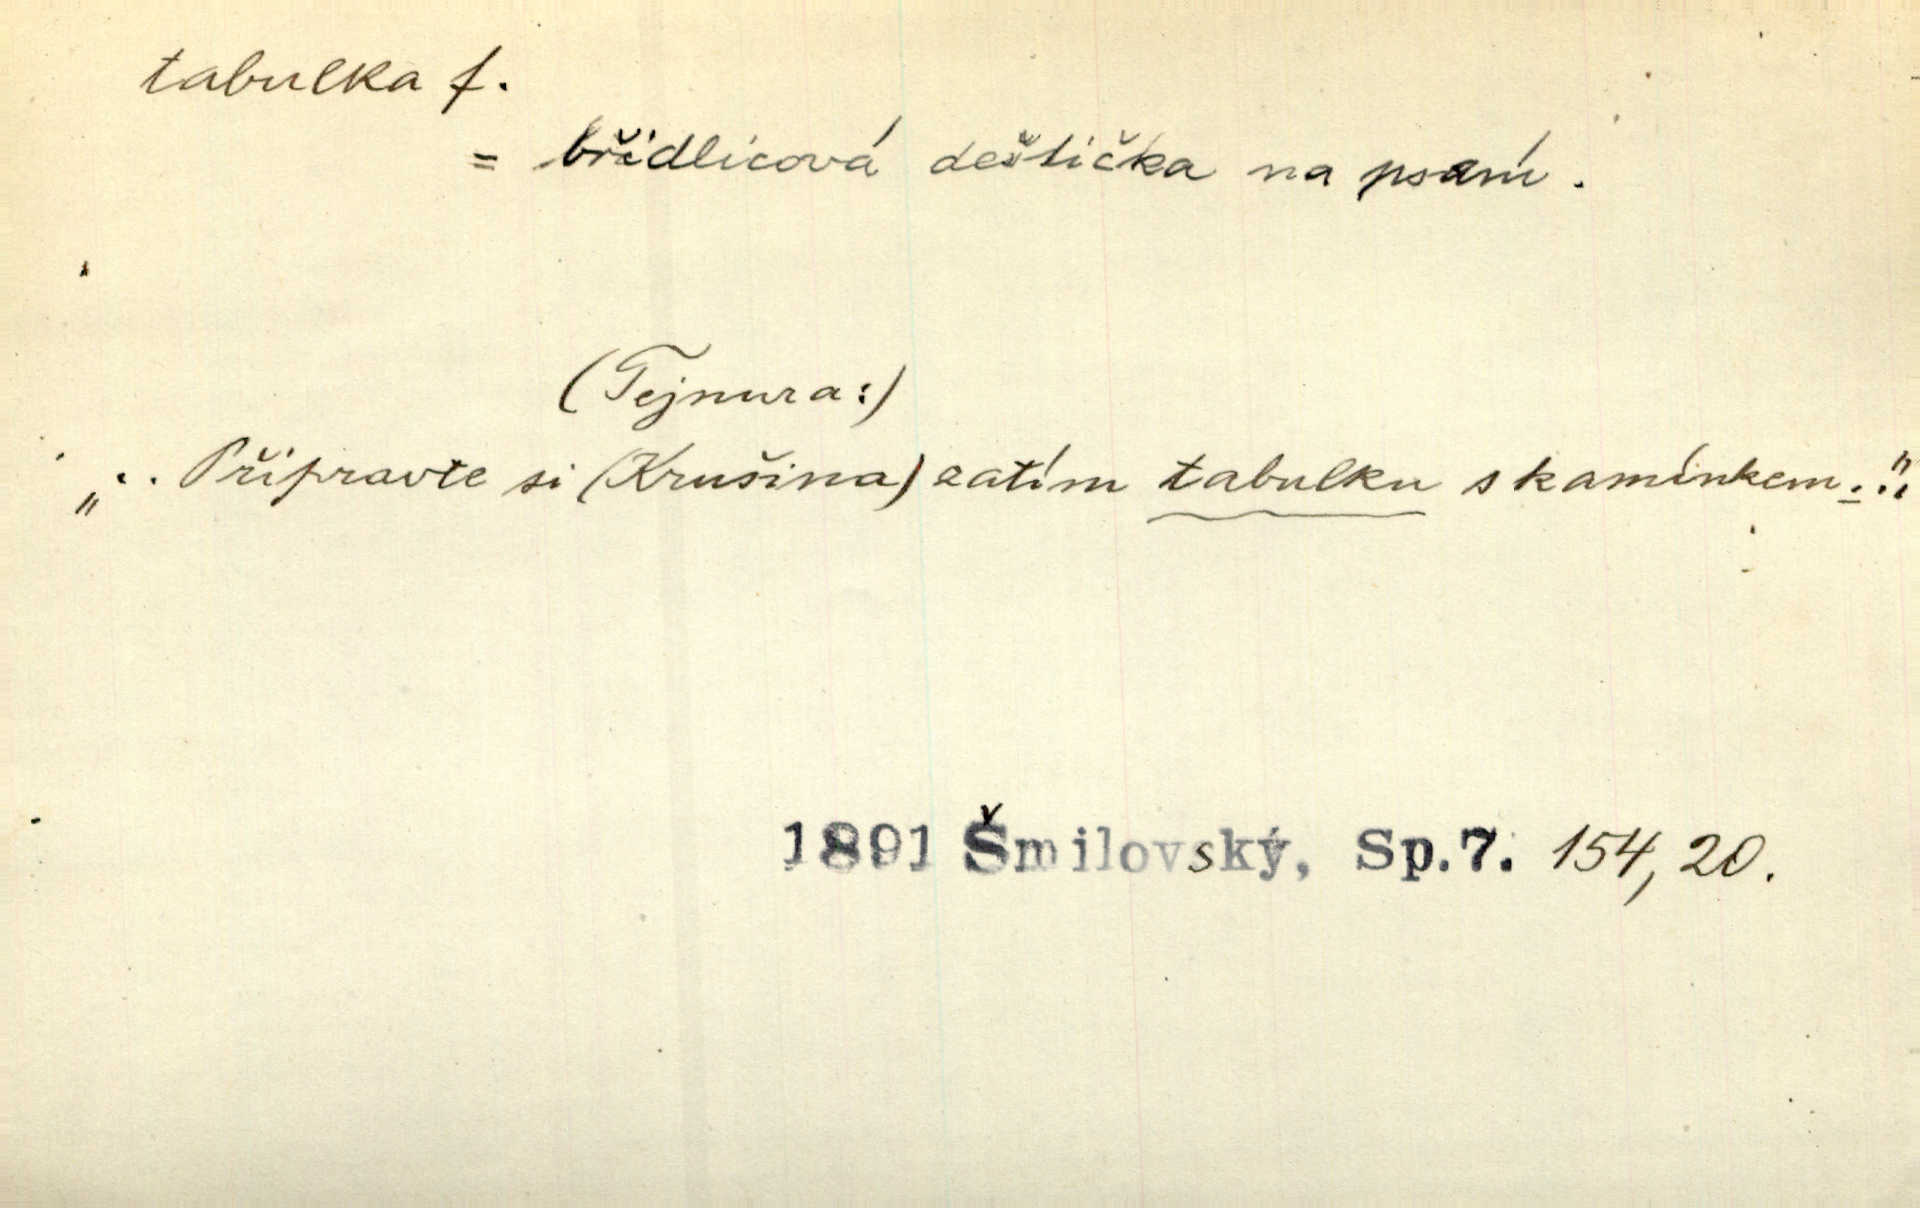 tabulka f.
= břidlicová deštička na psaní.
(Tejnura:)
„.. Připravte si (Krušina) zatím tabulku s kamínkem..."
1891 Šmilovský, Sp.7. 154, 20.